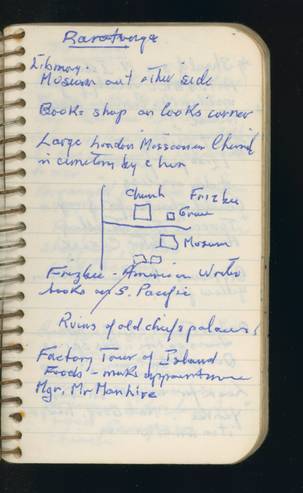 Rarotonga
Library.
Museum out other side
Book shop on Cooks corner
Large London Missionary Church
in cemetery by church
Church Frizbee
Grave
Museum
Frizbee - American writer
books on S. Pacific
Ruins of old chief's palaces
Factory Tour of Island
Foods - make appointment
Mgr. Mr Manhire